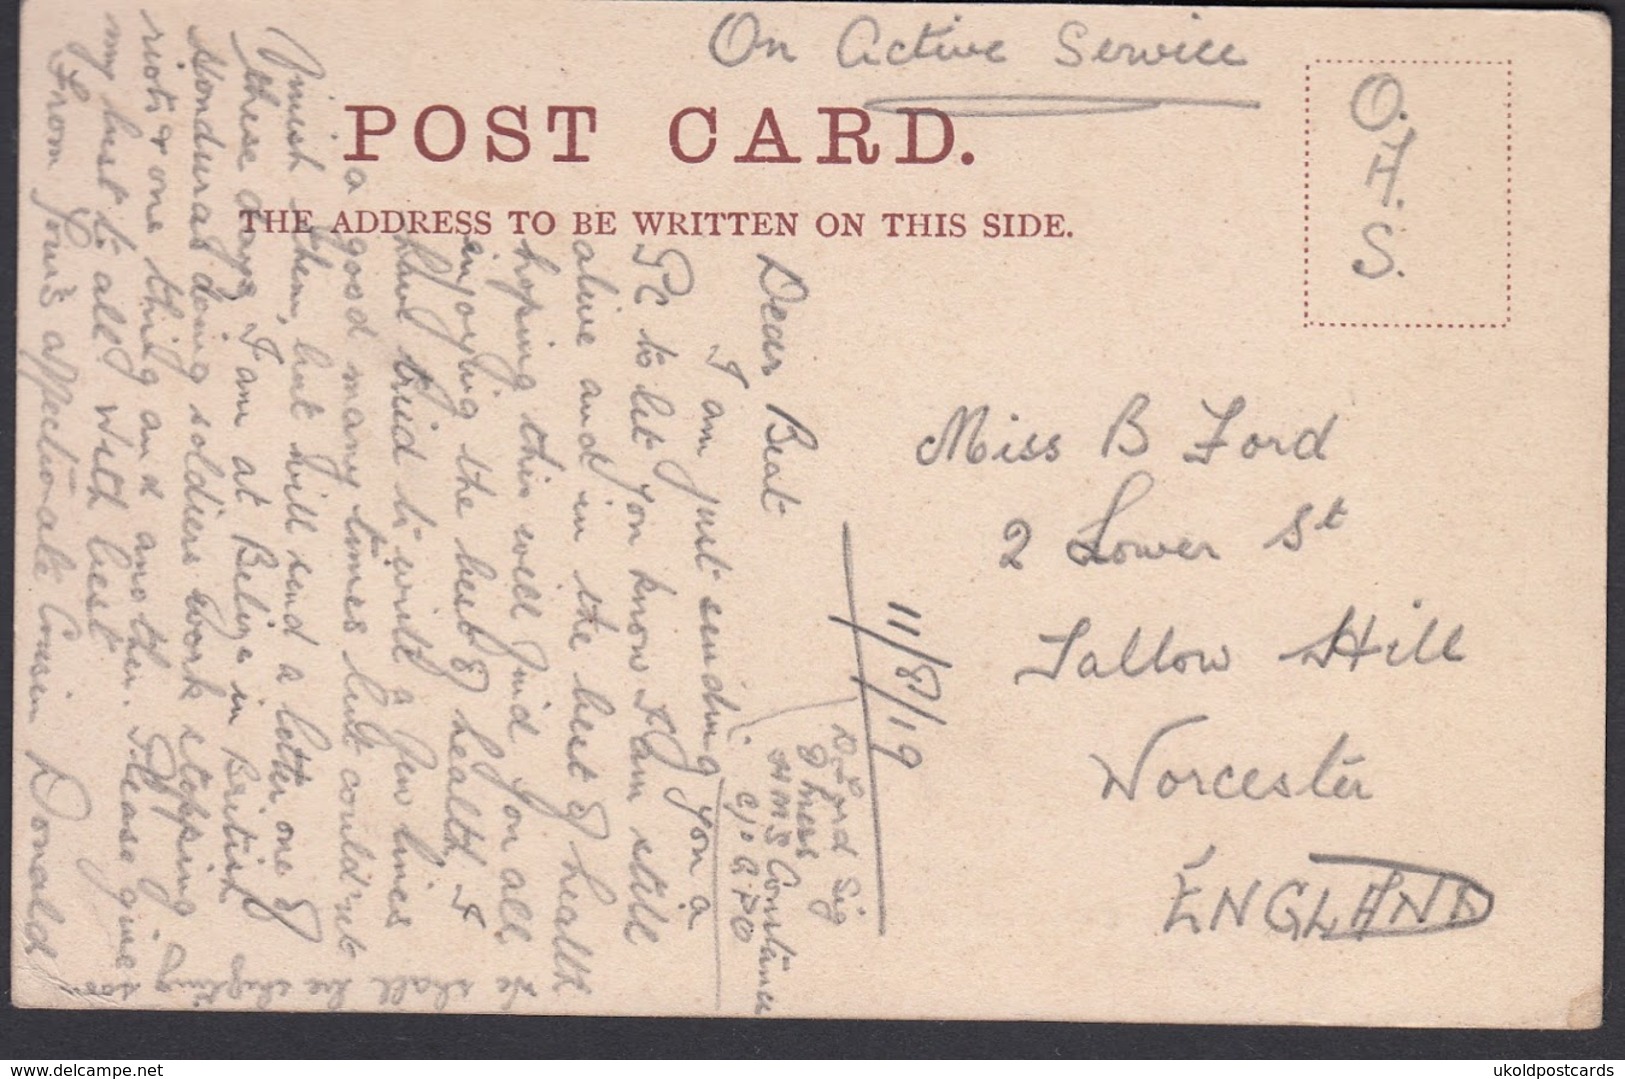 On Active Service
POST CARD.
THE ADDRESS TO BE WRITTEN ON THIS SIDE.
O.H.S.
Miss B Ford
2 Lower St
Tallow Hill
Worcester
ENGLAND
11/8/19
D. Ford Sig
9 Mess
HMS Constance
c/o GPO
Dear Beat
I am just sending you a
PC to let you know I am still
alive and in the best of health
hoping this will find you all
enjoying the best of health. I
have tried to write a few lines
a good many times but could'nt
finish them, but will send a letter one of
these days. I am at Belize in British
Honduras doing soldiers work stopping
riots & one thing and another. Please give
my best to all. With best
From Your's affectionate Cousin Donald